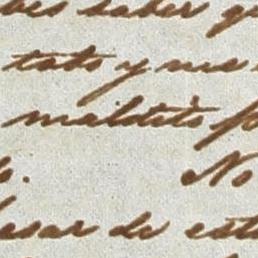 bes saber q
tato y me
maldito p
s. No
esar de est